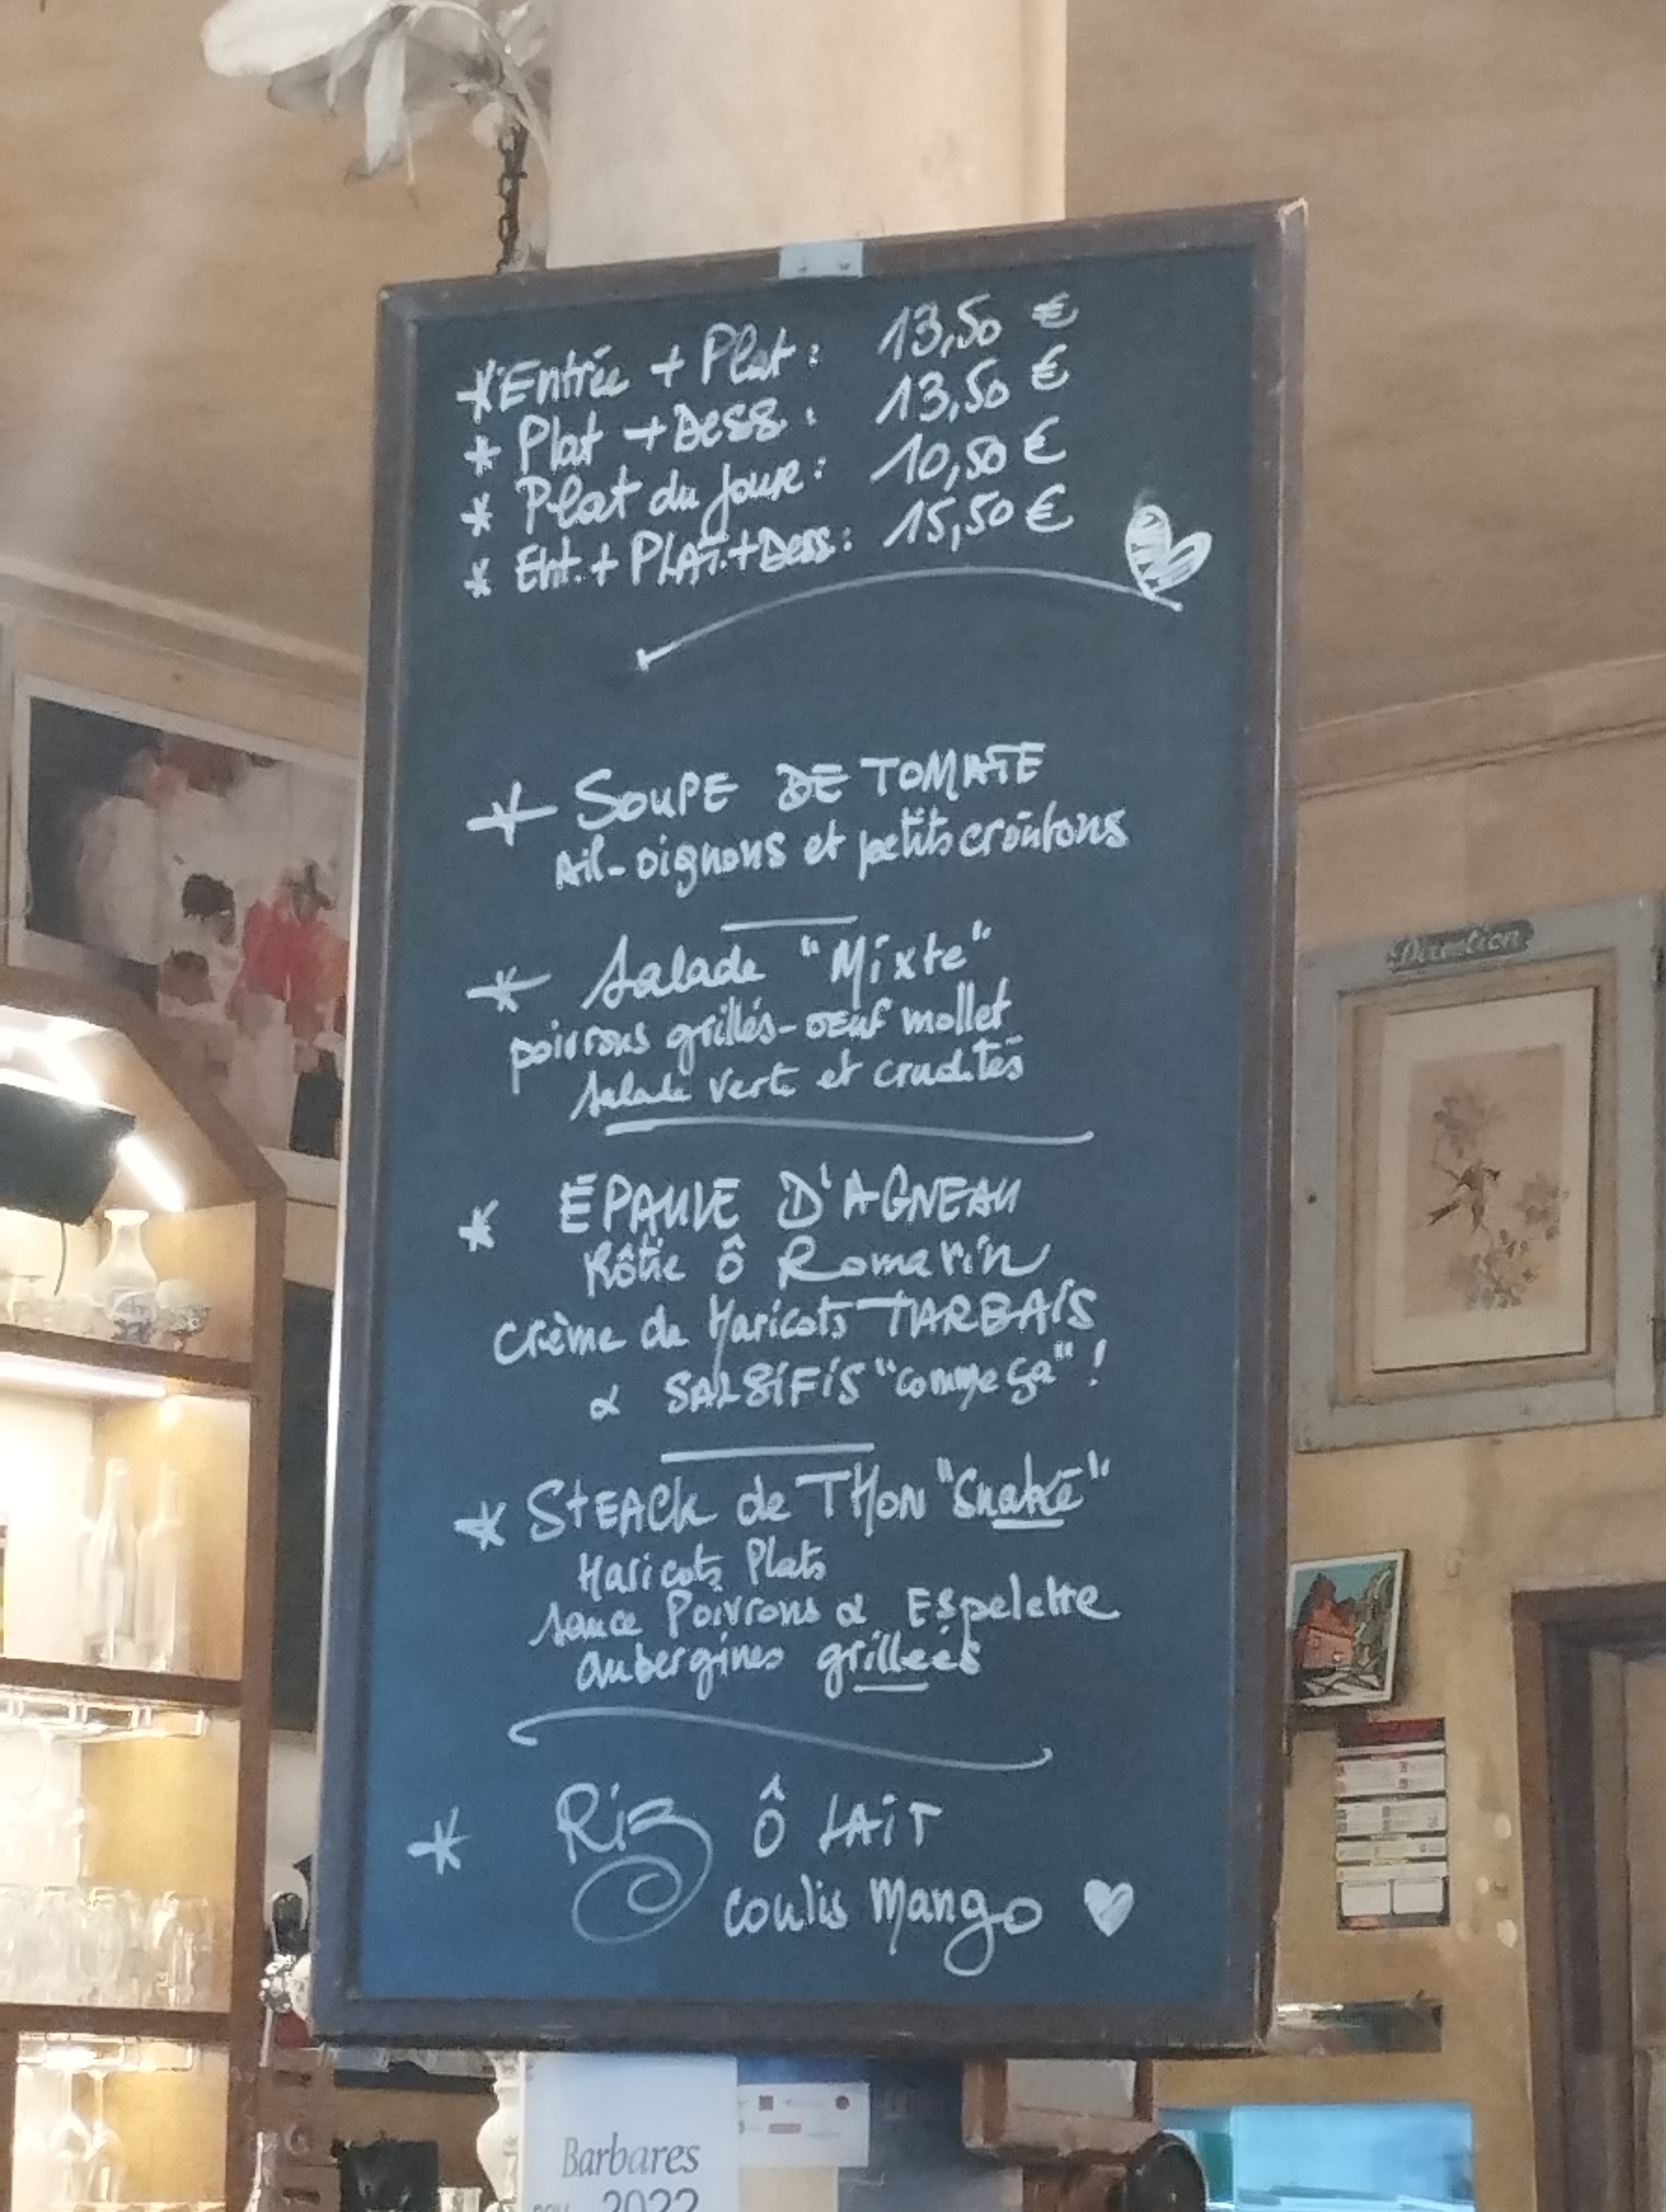 * Entrée + Plat : 13,50 €
* Plat + Dess. : 13,50 €
* Plat du jour : 10,50 €
* Ent. + PLAT. + Dess. : 15,50 €
* SOUPE DE TOMATE
Ail - oignons et petits croûtons
* Salade "Mixte"
poivrons grillés - oeuf mollet
salade vert et crudités
* ÉPAULE D'AGNEAU
Rôtie Ô Romarin
Crème de Haricots TARBAIS
& SALSIFIS "comme ça" !
* STEACK de THON "Snaké"
Haricots Plats
sauce Poivrons & Espelette
aubergines grillées
* Riz Ô LAIT
coulis Mango
Direction
Barbares
2022